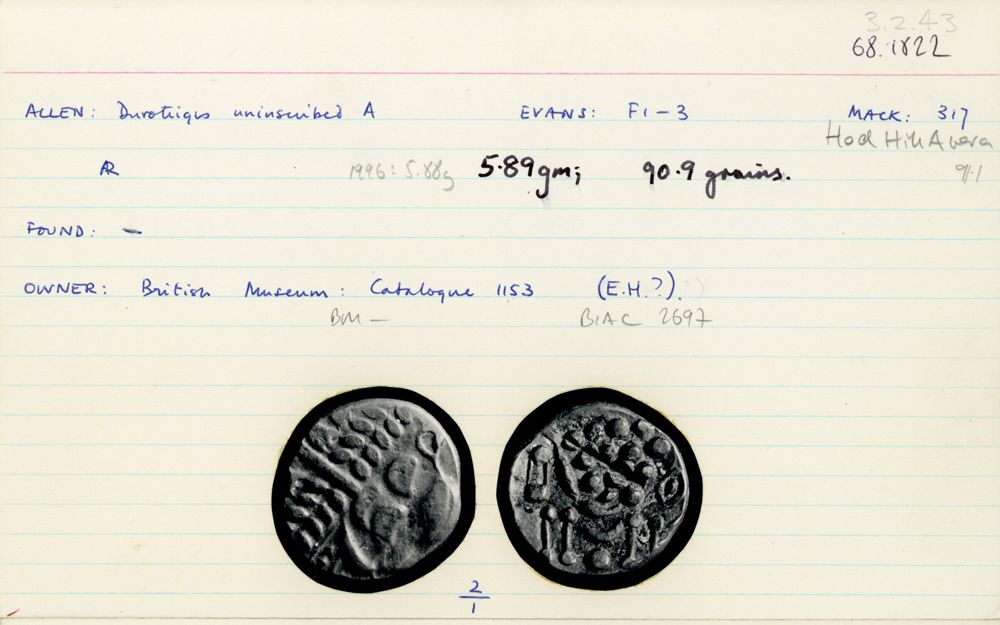 3.2.43
68.1822
ALLEN: Durotriges uninscribed A EVANS: F1-3 MACK: 317
Hod Hill A
AR 1996: 5.88g 5.89gm; 90.9 grains. 91.1
FOUND: -
OWNER: British Museum: Catalogue 1153 (E.H.?).
BM - BIAC 2697
2
1